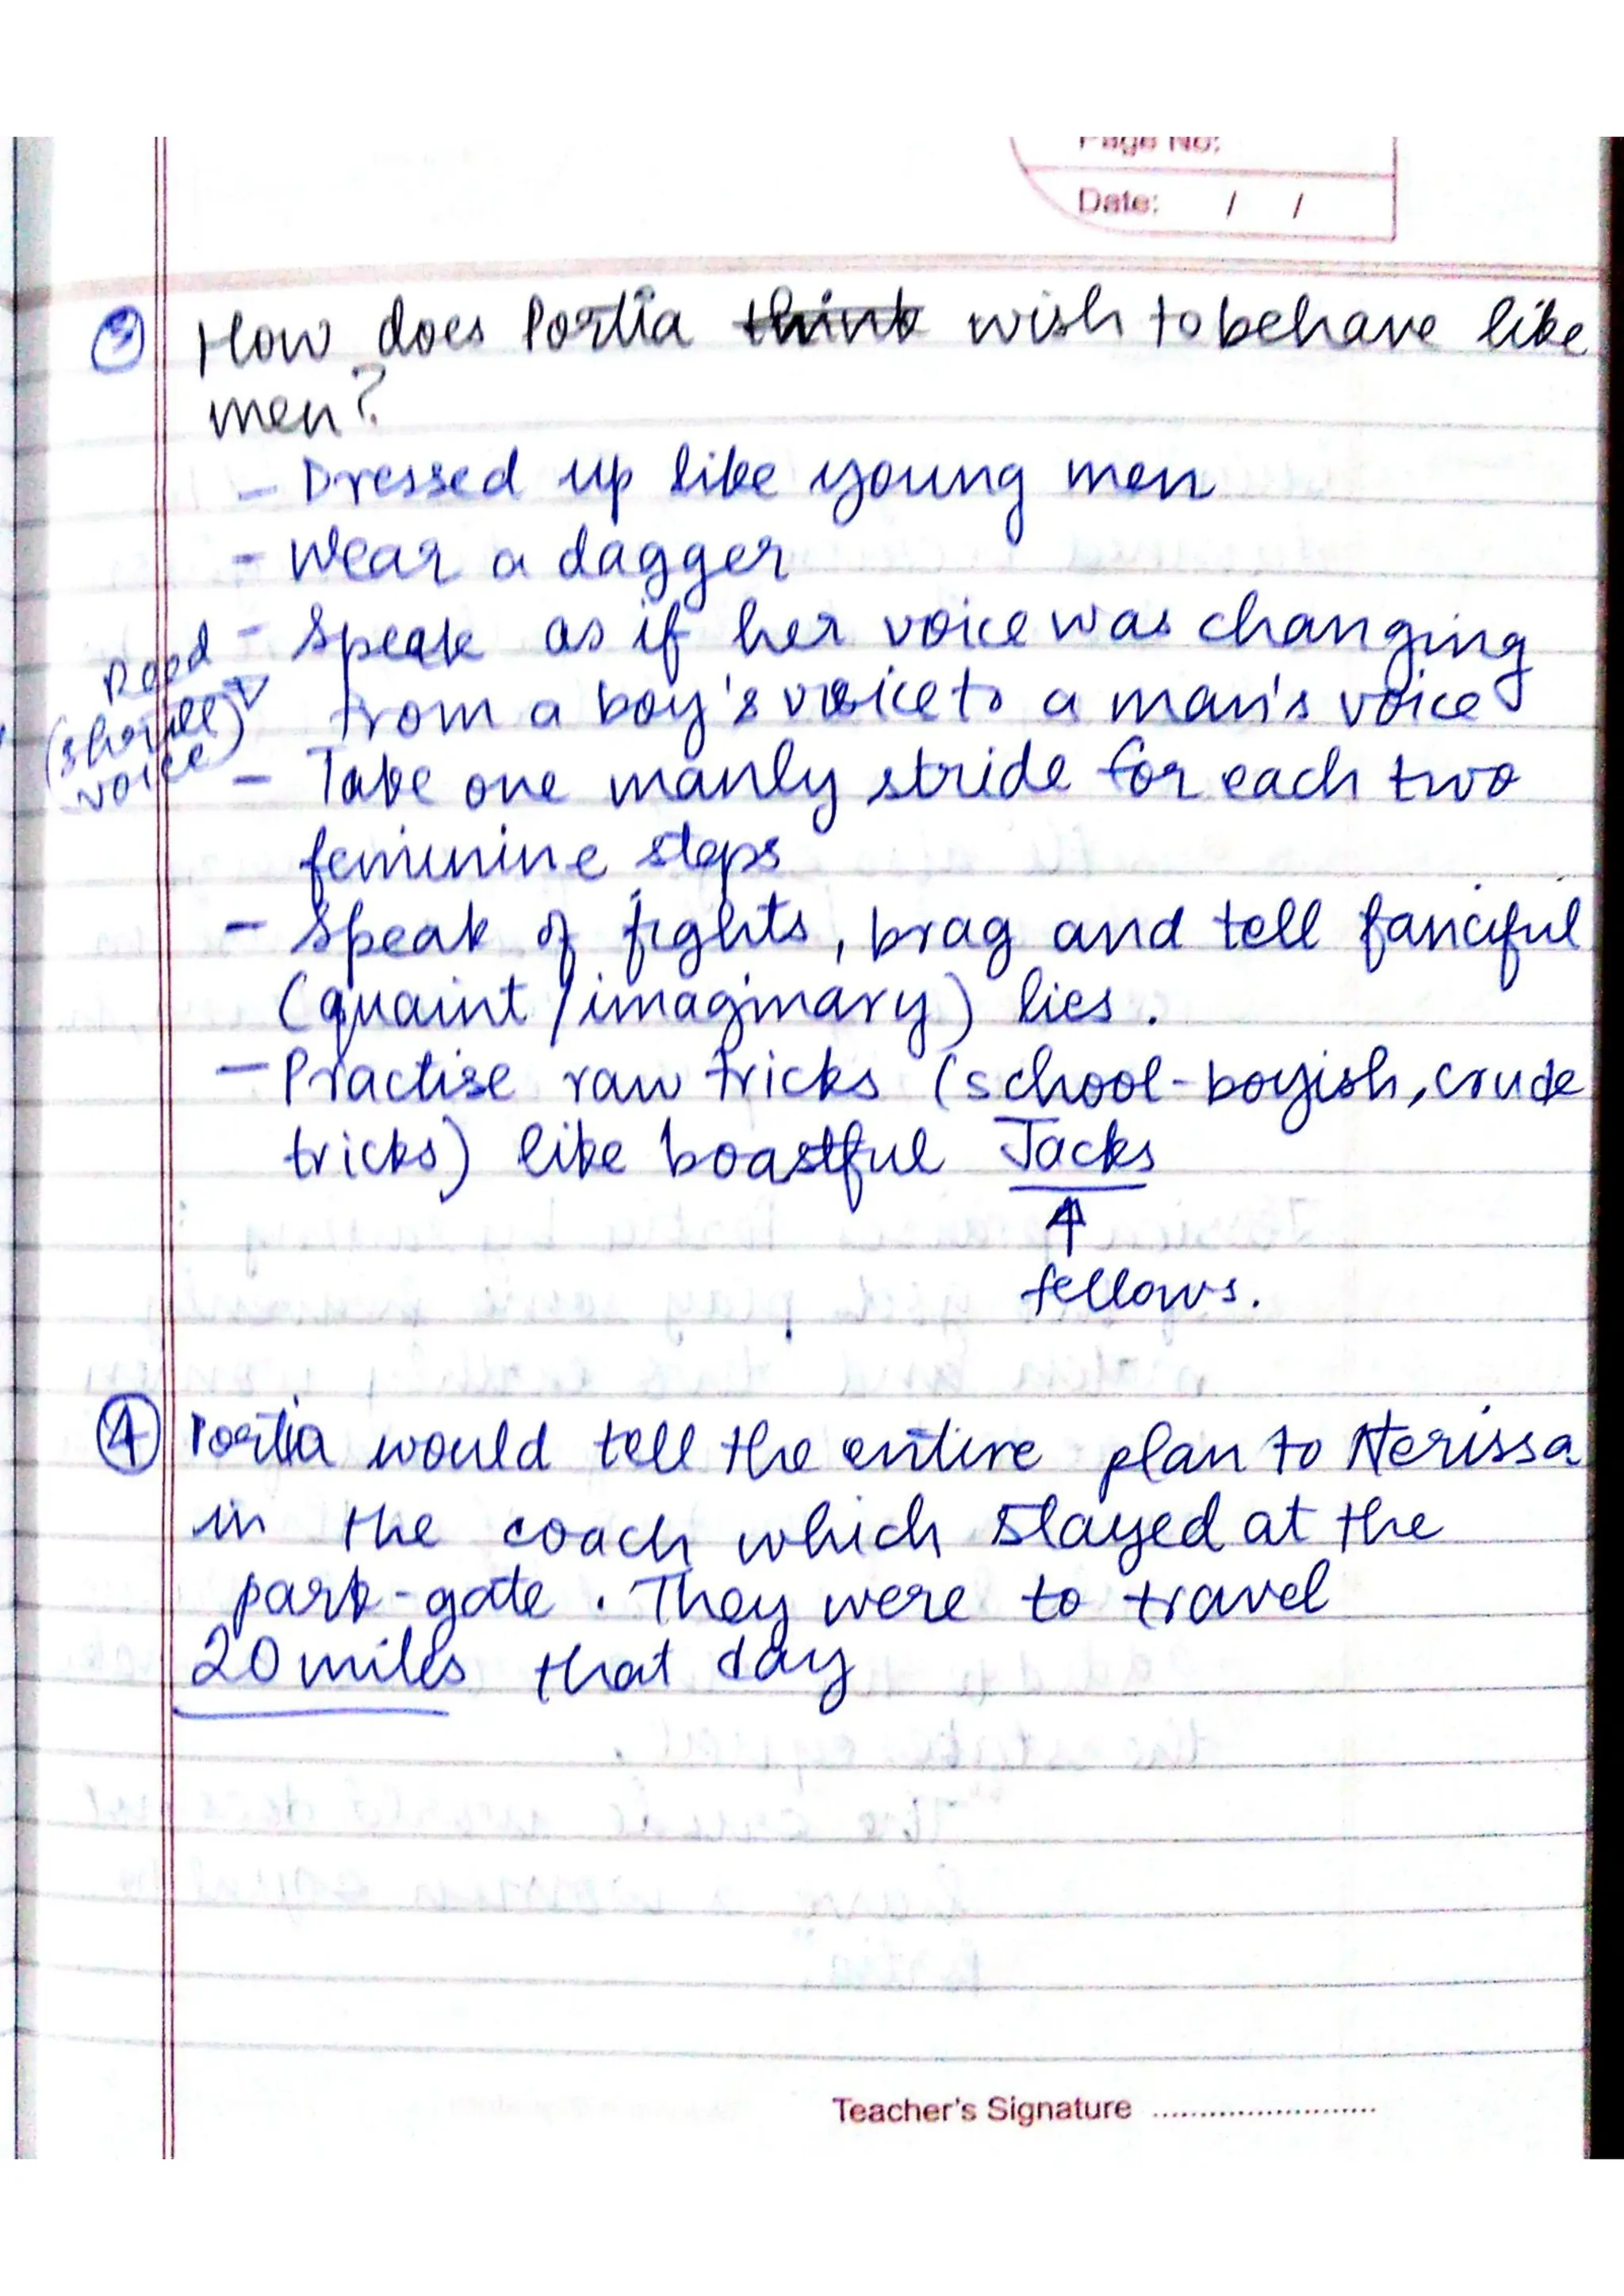 Page No:
Date: / /
3 How does Portia think wish to behave like
men?
- Dressed up like young men
- Wear a dagger
- Speak as if her voice was changing
from a boy's voice to a man's voice
Reed
(shrill
voice)
- Take one manly stride for each two
feminine steps
- Speak of fights, brag and tell fanciful
(quaint/imaginary) lies.
- Practise raw tricks (school-boyish, crude
tricks) like boastful Jacks
↑
fellows.
4 Portia would tell the entire plan to Nerissa
in the coach which stayed at the
park-gate. They were to travel
20 miles that day
Teacher's Signature ........................